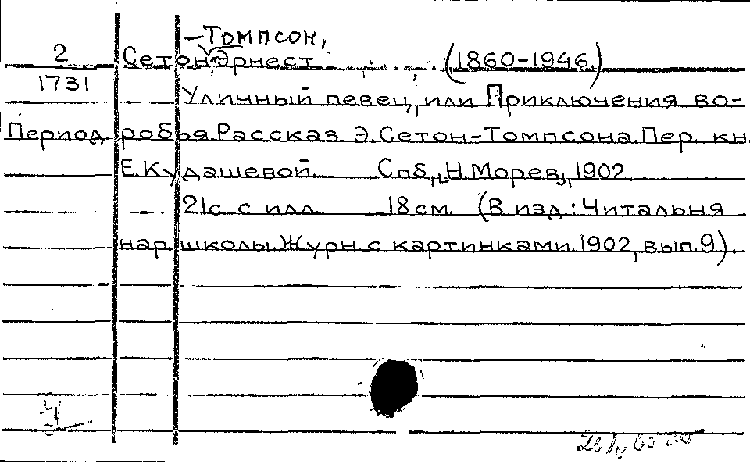 -Томпсон,
2 Сетон Эрнест (1860-1946)
1731
Уличный певец, или Приключения во-
Период робья. Рассказ Э. Сетон-Томпсона. Пер. кн.
Е. Кудашевой. Спб., Н. Морев, 1902.
21с. с илл. 18см. (В изд.: Читальня
нар. школы. Журн. с картинками. 1902, вып. 9).